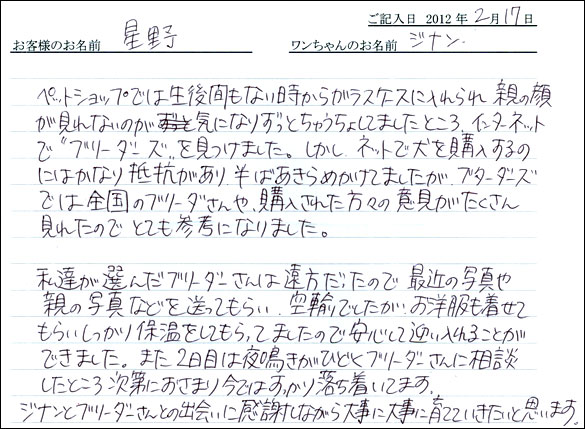 ご記入日 2012年2月17日
お客様のお名前 星野 ワンちゃんのお名前 ジナン.
ペットショップでは生後間もない時からガラスケースに入れられ 親の顔
が見れないのが 気になりずっとちゅうちょしてましたところ、インターネット
で“ブリーダーズ”を見つけました。しかし、ネットで犬を購入するの
にはかなり抵抗があり、半ばあきらめかけてましたが、ブリーダーズ
では全国のブリーダーさんや、購入された方々の意見がたくさん
見れたので とても参考になりました。
私達が選んだブリーダーさんは遠方だったので 最近の写真や
親の写真などを送ってもらい、空輸でしたが、お洋服も着せて
もらいしっかり保温をしてもらってましたので安心して迎い入れることが
できました。また2日目は夜鳴きがひどくブリーダーさんに相談
したところ次第におさまり今ではすっかり落ち着いてます。
ジナンとブリーダーさんとの出会いに感謝しながら大事に大事に育てていきたいと思います。